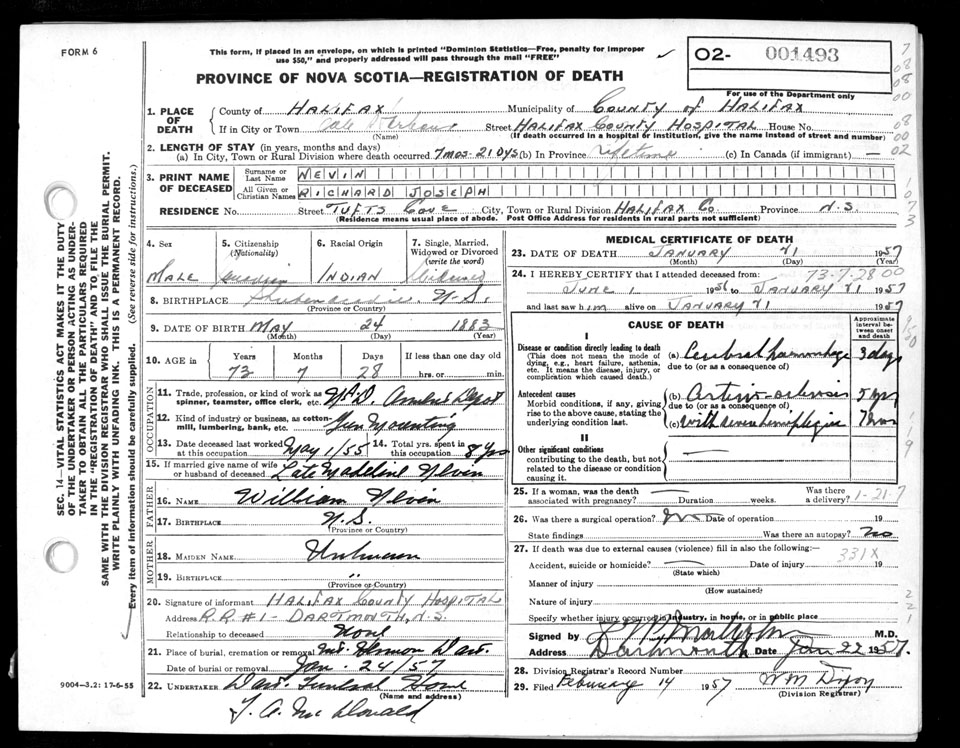 FORM 6
This form, if placed in an envelope, on which is printed "Dominion Statistics—Free, penalty for improper
use $50," and properly addressed will pass through the mail "FREE"
PROVINCE OF NOVA SCOTIA—REGISTRATION OF DEATH
O2- 001493
For use of the Department only
1. PLACE OF DEATH County of HALIFAX Municipality of COUNTY OF HALIFAX
If in City or Town (Name) Street HALIFAX COUNTY HOSPITAL House No.
(If death occurred in a hospital or institution, give the name instead of street and number)
2. LENGTH OF STAY (in years, months and days)
(a) In City, Town or Rural Division where death occurred 7 mos-21 Dys (b) In Province Lifetime (c) In Canada (if immigrant) —
3. PRINT NAME OF DECEASED
Surname or Last Name NEVIN
All Given or Christian Names RICHARD JOSEPH
RESIDENCE No. Street TUFTS Cove City, Town or Rural Division HALIFAX Co. Province N.S.
(Residence means usual place of abode. Post Office Address for residents in rural parts not sufficient)
4. Sex MALE
5. Citizenship (Nationality)
6. Racial Origin INDIAN
7. Single, Married, Widowed or Divorced (write the word) Widowed
8. BIRTHPLACE Shubenacadie N.S.
(Province or Country)
9. DATE OF BIRTH MAY 24 1883
(Month) (Day) (Year)
10. AGE in Years Months Days If less than one day old
73 7 28 hrs. or min.
OCCUPATION
11. Trade, profession, or kind of work as spinner, teamster, office clerk, etc. Depot
12. Kind of industry or business, as cotton-mill, lumbering, bank, etc. Gun Mounting
13. Date deceased last worked at this occupation May 1/55
14. Total yrs. spent in this occupation 8 yrs
15. If married give name of wife or husband of deceased Late Madeline Nevin
FATHER
16. NAME William Nevin
17. BIRTHPLACE N.S.
(Province or Country)
MOTHER
18. MAIDEN NAME Unknown
19. BIRTHPLACE "
(Province or Country)
20. Signature of informant HALIFAX COUNTY HOSPITAL
Address R.R. #1 - DARTMOUTH, N.S.
Relationship to deceased None
21. Place of burial, cremation or removal Mt. Hermon Dart.
Date of burial or removal Jan. 24/57
22. UNDERTAKER Dart. Funeral Home
(Name and address)
J. A. McDonald
MEDICAL CERTIFICATE OF DEATH
23. DATE OF DEATH JANUARY 21 1957
(Month) (Day) (Year)
73-7-28 00
24. I HEREBY CERTIFY that I attended deceased from:
JUNE 1 1956 to JANUARY 21 1957
and last saw him alive on JANUARY 21 1957
CAUSE OF DEATH
Approximate interval between onset and death
I
Disease or condition directly leading to death
(This does not mean the mode of dying, e.g., heart failure, asthenia, etc. It means the disease, injury, or complication which caused death.)
(a) Cerebral haemorrhage 3 days
due to (or as a consequence of)
Antecedent causes
Morbid conditions, if any, giving rise to the above cause, stating the underlying condition last.
(b) Arterio-sclerosis 5 yrs
due to (or as a consequence of)
(c) with severe hemiplegia 7 mos
II
Other significant conditions
contributing to the death, but not related to the disease or condition causing it.
25. If a woman, was the death associated with pregnancy? — Duration weeks. Was there a delivery?
1-21-7
26. Was there a surgical operation? No Date of operation 19
State findings Was there an autopsy? No
27. If death was due to external causes (violence) fill in also the following:—
331X
Accident, suicide or homicide? — Date of injury 19
(State which)
Manner of injury
(How sustained)
Nature of injury
Specify whether injury occurred in industry, in home, or in public place
Signed by M.D.
Address Dartmouth Date Jan 22 1957.
28. Division Registrar's Record Number
29. Filed February 14 1957
(Division Registrar)
SEC. 14—VITAL STATISTICS ACT MAKES IT THE DUTY
OF THE UNDERTAKER OR PERSON ACTING AS UNDER-
TAKER TO OBTAIN ALL THE PARTICULARS REQUIRED
IN THE "REGISTRATION OF DEATH" AND TO FILE THE
SAME WITH THE DIVISION REGISTRAR WHO SHALL ISSUE THE BURIAL PERMIT.
WRITE PLAINLY WITH UNFADING INK. THIS IS A PERMANENT RECORD.
Every item of information should be carefully supplied. (See reverse side for instructions.)
9004—3.2: 17-6-55